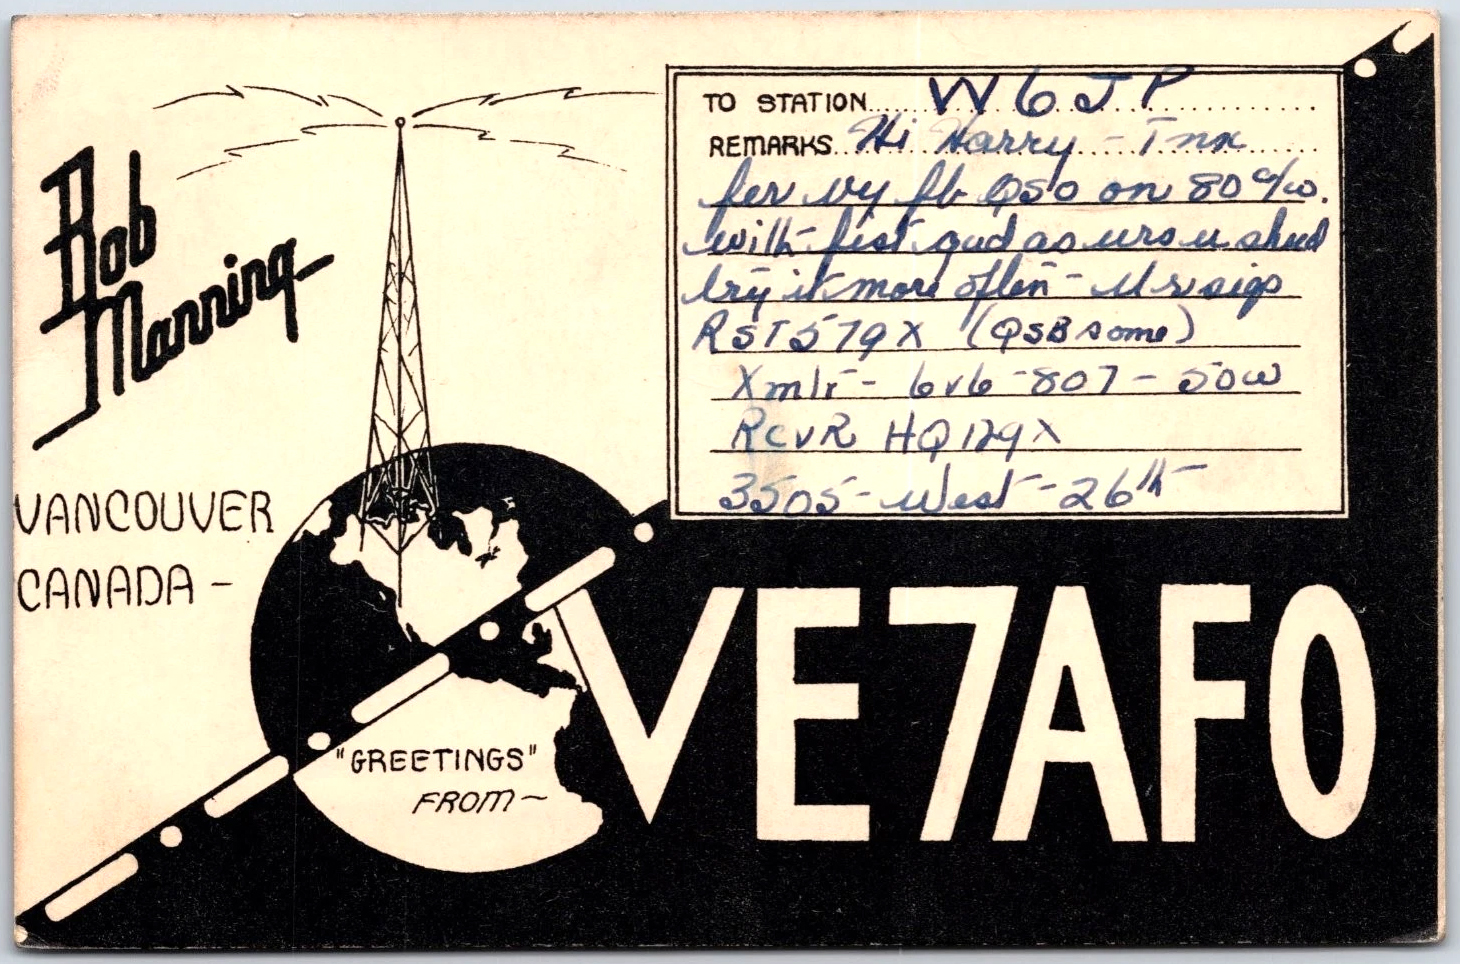 Bob
Manning
VANCOUVER
CANADA -
TO STATION W6JP
REMARKS Hi Harry - Tnx
fer vy fb QSO on 80 c/w.
with fist gud as urs u shud
try it more often - Ur sigs
RST 579X (QSB some)
Xmtr - 6v6 - 807 - 50w
RCVR HQ129X
3505 - West - 26th
"GREETINGS"
FROM ~
VE7AFO